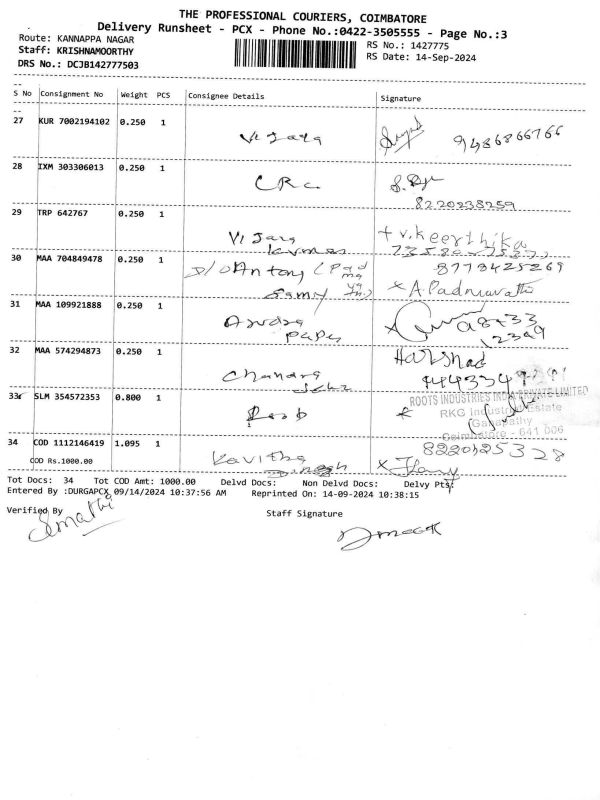 THE PROFESSIONAL COURIERS, COIMBATORE
Delivery Runsheet - PCX - Phone No.:0422-3505555 - Page No.:3
Route: KANNAPPA NAGAR
Staff: KRISHNAMOORTHY
DRS No.: DCJB142777503
RS No.: 1427775
RS Date: 14-Sep-2024
S No Consignment No Weight PCS Consignee Details Signature
27 KUR 7002194102 0.250 1 9486866766
28 IXM 303306013 0.250 1 8220238259
29 TRP 642767 0.250 1 v.keerthika
30 MAA 704849478 0.250 1 Antony 8773425269
A.Padmavathi
31 MAA 109921888 0.250 1
32 MAA 574294873 0.250 1 Harshad
33 SLM 354572353 0.800 1
ROOTS INDUSTRIES INDIA PRIVATE LIMITED
RKG Industrial Estate
Ganapathy
Coimbatore - 641 006
34 COD 1112146419 1.095 1 Kavitha
COD Rs.1000.00
Tot Docs: 34 Tot COD Amt: 1000.00 Delvd Docs: Non Delvd Docs: Delvy Pts:
Entered By :DURGAPCX 09/14/2024 10:37:56 AM Reprinted On: 14-09-2024 10:38:15
Verified By Staff Signature